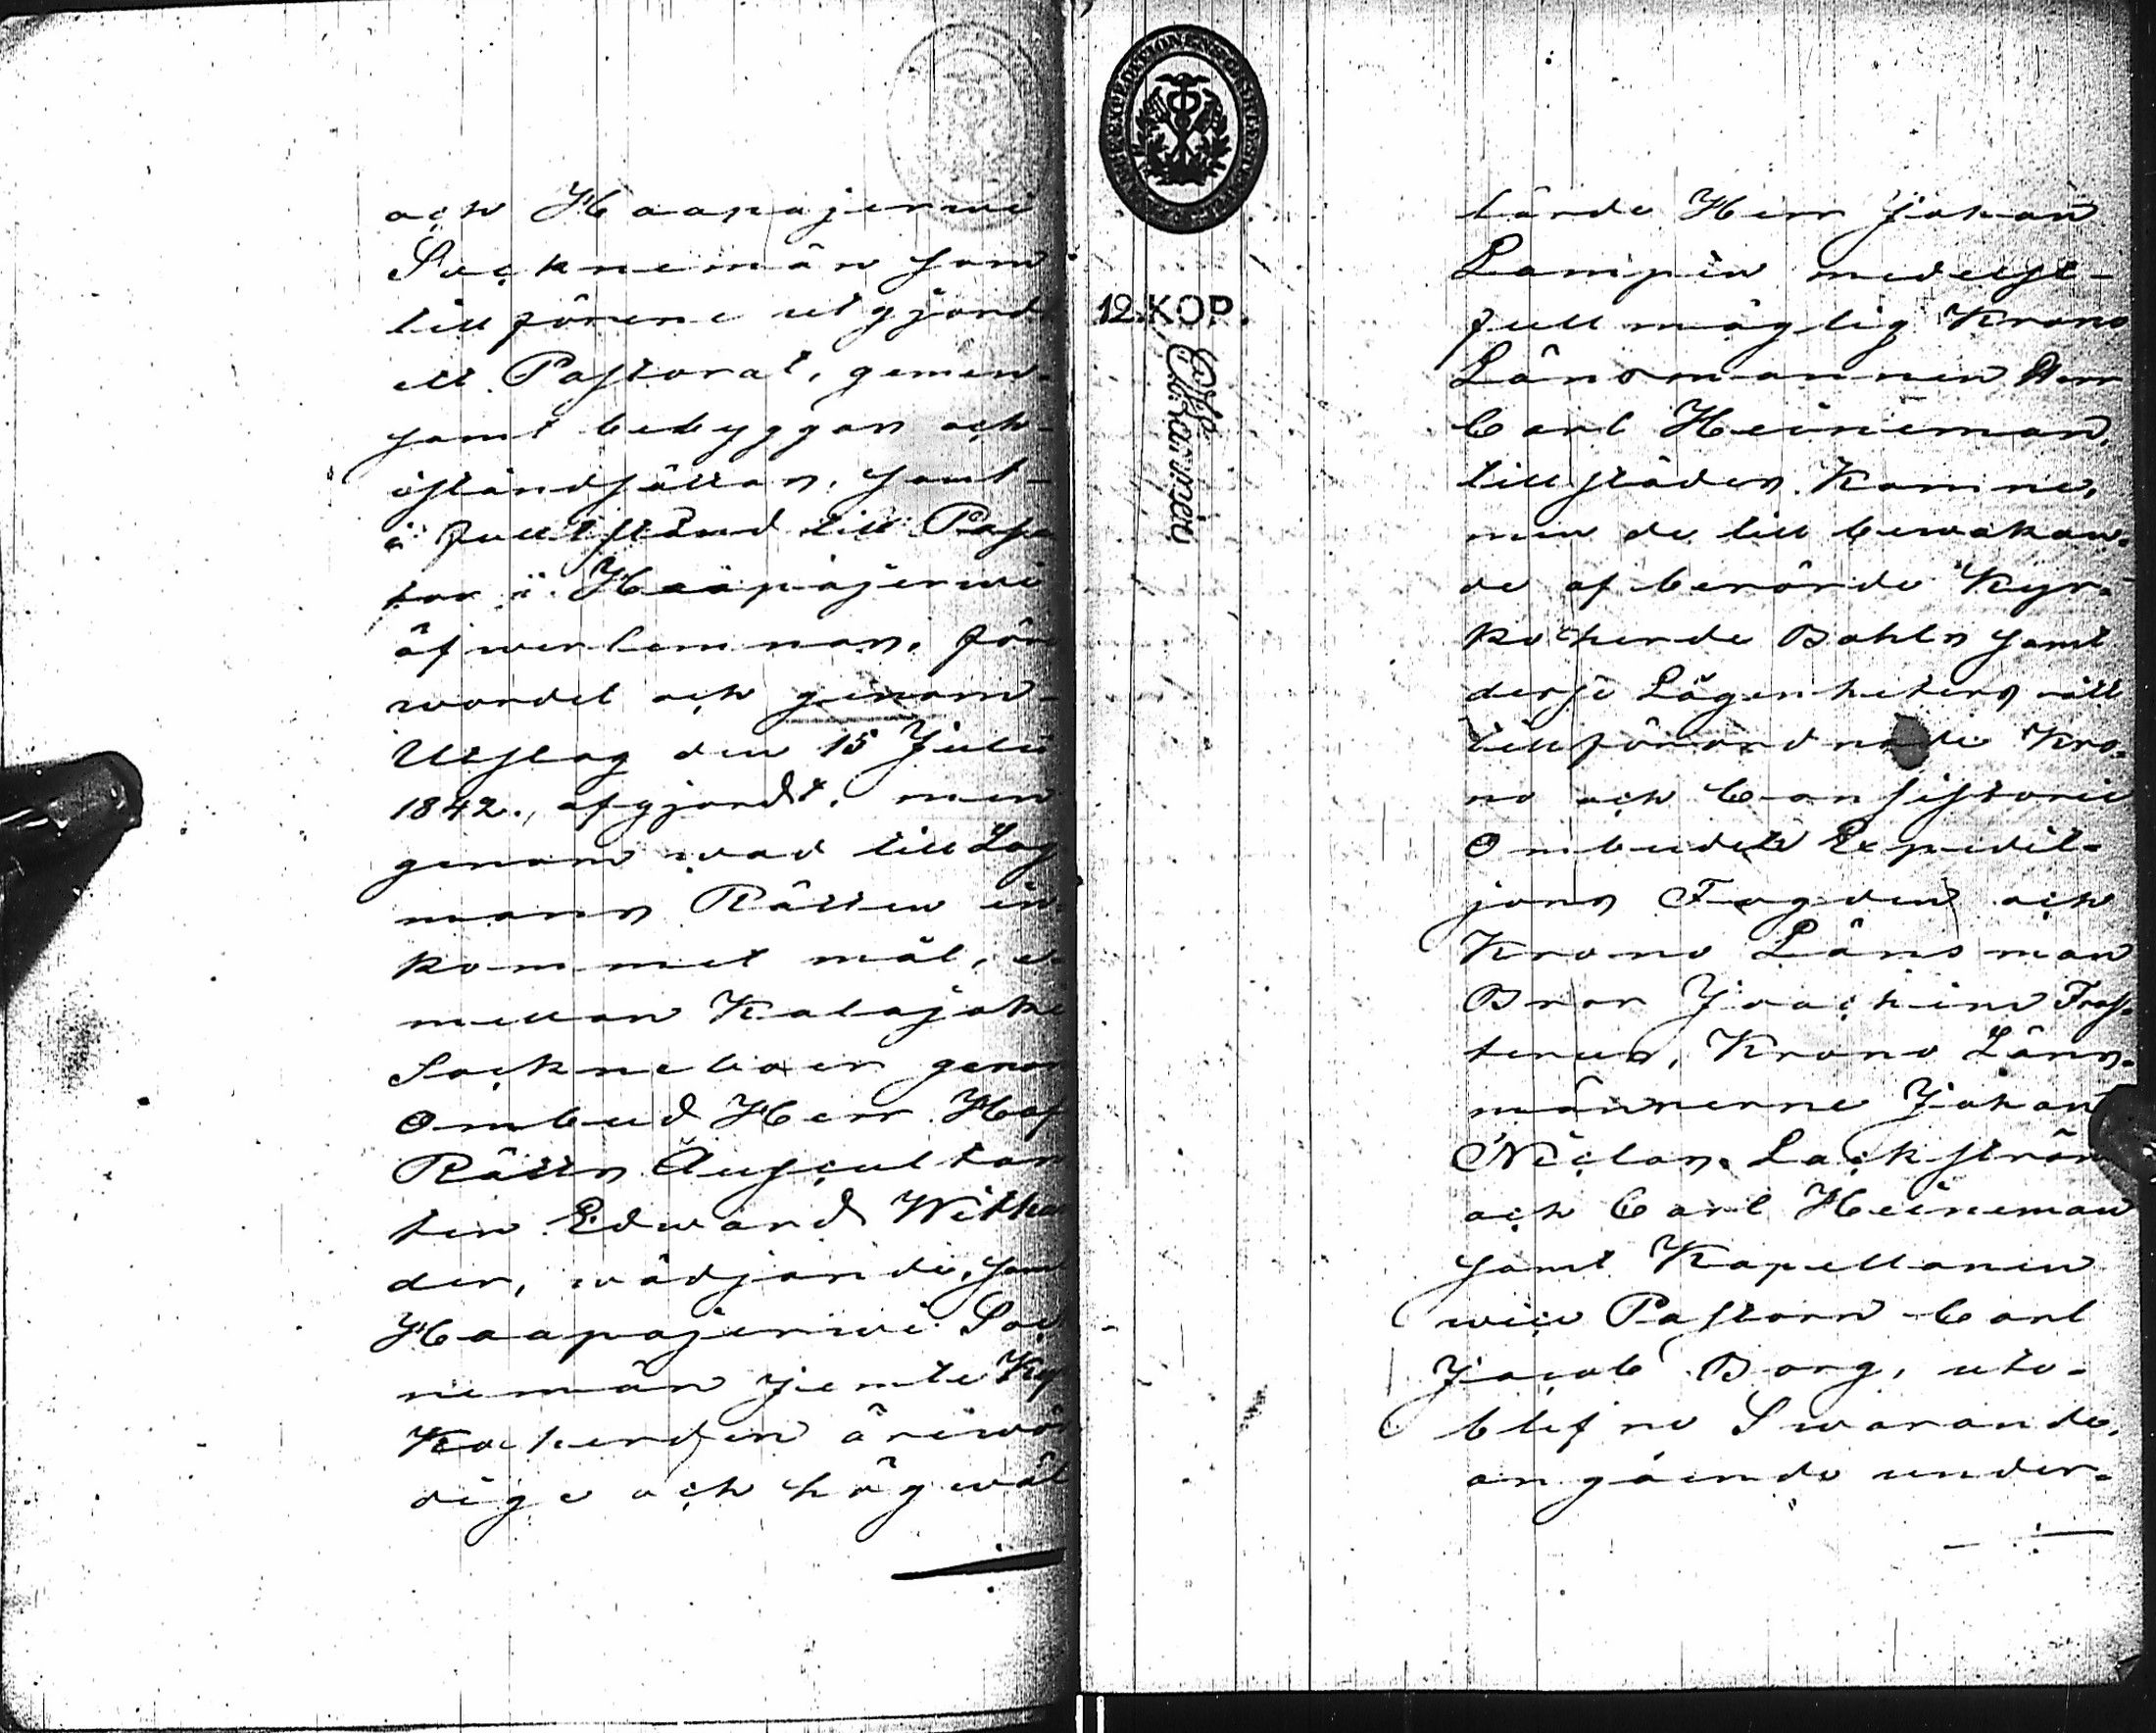 och Haapajerwi
Socknemän som
till förene utgjord
ett Pastorat, gemen-
samt bebyggas och
iståndsättas, samt
i fullt stånd till Pas-
tor i Haapajerwi
öfwerlemnas, före
wordet och genom
Utslag den 15 Julii
1842., afgjordt, men
genom wad till Lag
mans Rätten in-
kommet mål, e-
mellan Kalajoki
Sockneboer genom
Ombud Herr Hof
Rätts Auscultan
ten Edward Withan
der, wädjande, samt
Haapajerwi Soc
nemän jemte Kyr
koherden ärewör
dige och högwäl
12. KOP.
lärde Herr Johan
Lampén medelst
fullmäglig Krono
Länsmannen Herr
Carl Heineman,
tillstädes komne,
men de till bewakan-
de af berörde Kyr-
koherde Bohls samt
desse Lägenheters rätt
tillförordnade Kro-
no och Consistorii
Ombuden Expedit-
jons Fogden och
Krono Länsman
Bror Joachim Fros-
terus, Krono Läns-
männerne Johan
Niclas Lackström
och Carl Heineman
samt Kapellanen
wice Pastorn Carl
Jacob Borg, ute-
blefne Swarande,
angående under-